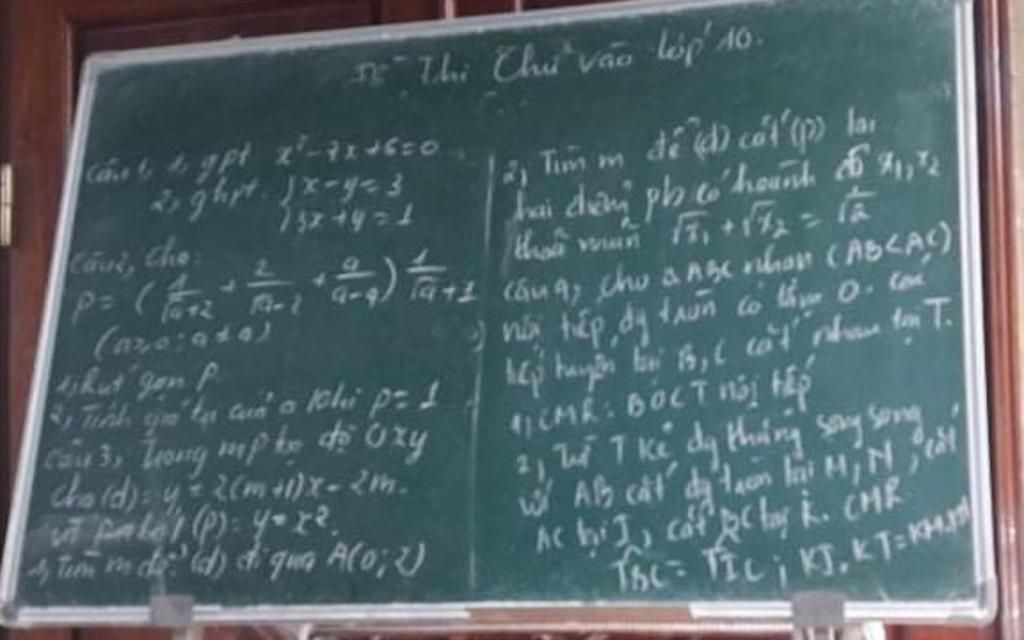 Thi Thử vào lớp 10.
Câu 1, 1, gpt x² - 7x + 6 = 0
2, ghpt. { x - y = 3
3x + y = 1
Câu 2, Cho:
P = ( 1/(√a+2) + 2/(√a-2) + a/(a-4) ) 1/(√a+1)
(a≥0; a≠4)
1, Rút gọn P.
2, Tính giá trị của a khi P = 1
Câu 3, Trong mp tọa độ Oxy
Cho (d): y = 2(m+1)x - 2m.
và (P): y = x².
1, Tìm m để (d) đi qua A(0; 2)
2, Tìm m để (d) cắt (P) tại
hai điểm pb có hoành độ x₁, x₂
thoả mãn √x₁ + √x₂ = √2
Câu 4, Cho Δ ABC nhọn (AB<AC)
nội tiếp đg tròn có tâm O. Các
tiếp tuyến tại B, C cắt nhau tại T.
1, CMR: BOCT nội tiếp
2, Từ T kẻ đg thẳng song song
với AB cắt đg tròn tại M, N, cắt
AC tại I, cắt BC tại K. CMR
TBC = TIC; KI.KT = KM.